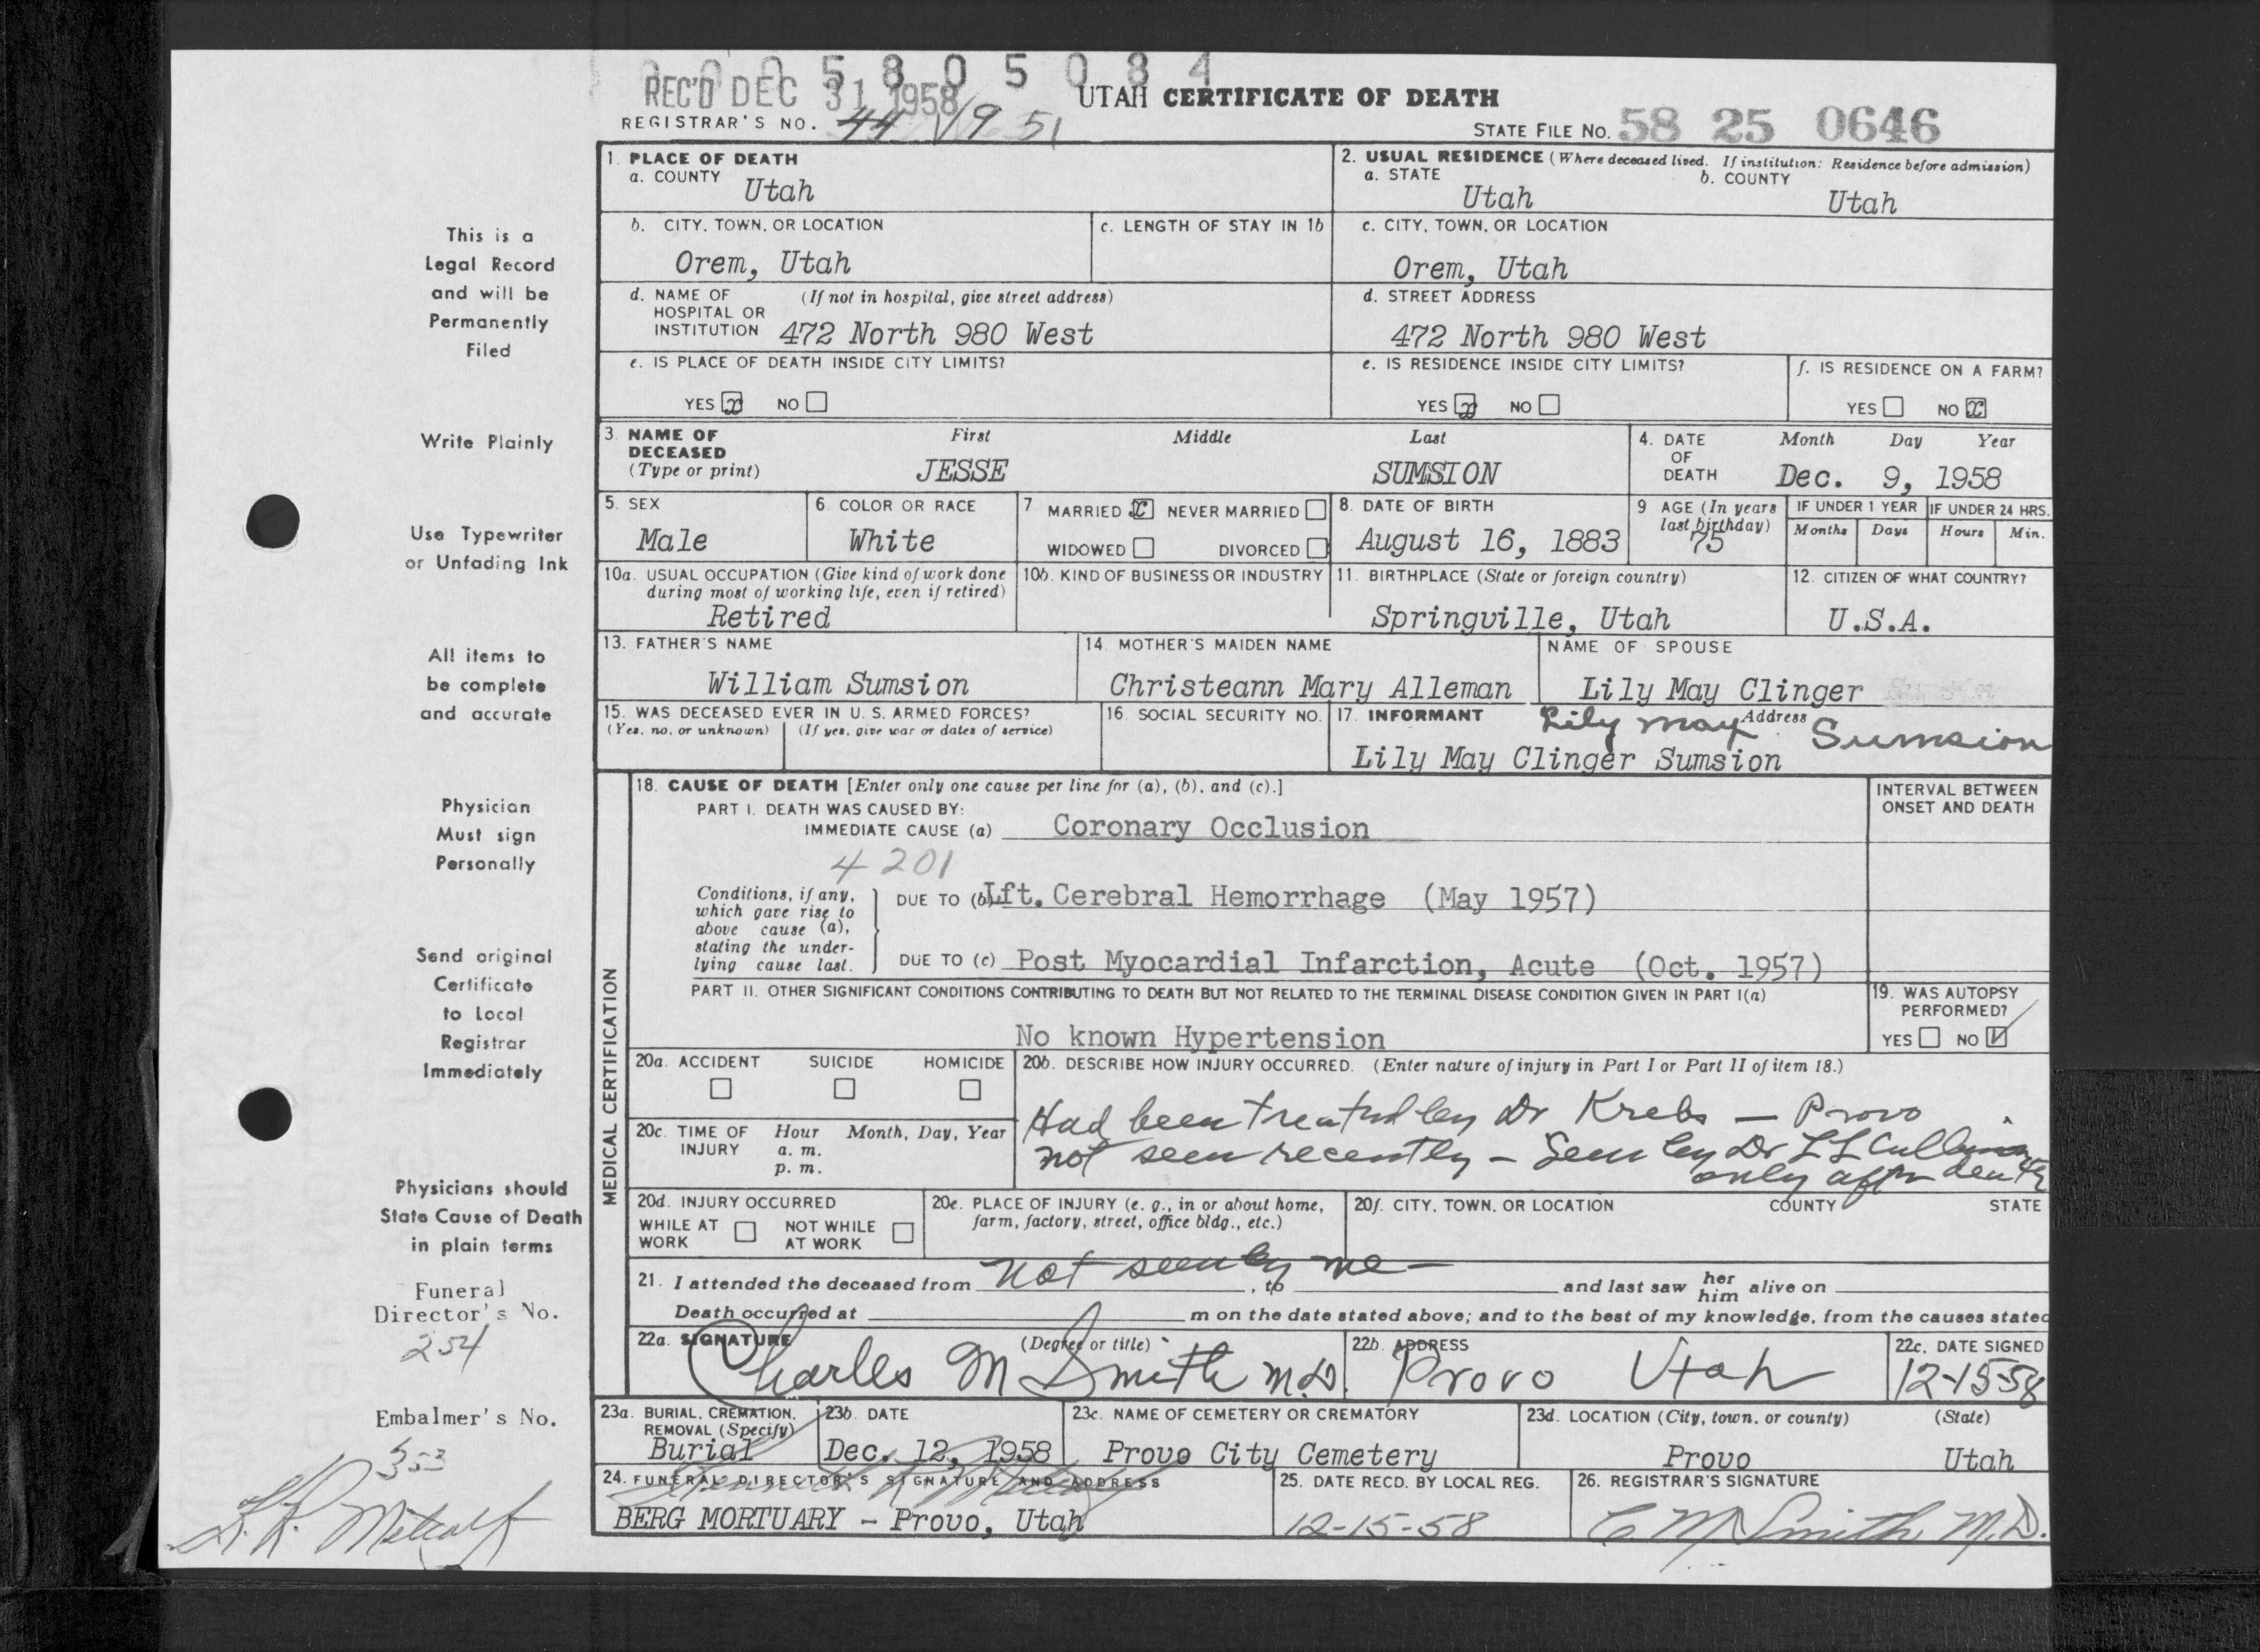 5 8 0 5 0 8 4
REC'D DEC 31 1958
UTAH CERTIFICATE OF DEATH
REGISTRAR'S NO. 44 1951
STATE FILE No. 58 25 0646
This is a
Legal Record
and will be
Permanently
Filed
Write Plainly
Use Typewriter
or Unfading Ink
All items to
be complete
and accurate
Physician
Must sign
Personally
Send original
Certificate
to Local
Registrar
Immediately
Physicians should
State Cause of Death
in plain terms
Funeral
Director's No.
254
Embalmer's No.
353
Metcalf
1. PLACE OF DEATH
a. COUNTY Utah
2. USUAL RESIDENCE (Where deceased lived. If institution: Residence before admission)
a. STATE Utah b. COUNTY Utah
b. CITY, TOWN, OR LOCATION Orem, Utah
c. LENGTH OF STAY IN 1b
c. CITY, TOWN, OR LOCATION Orem, Utah
d. NAME OF HOSPITAL OR INSTITUTION (If not in hospital, give street address) 472 North 980 West
d. STREET ADDRESS 472 North 980 West
e. IS PLACE OF DEATH INSIDE CITY LIMITS?
YES x NO
e. IS RESIDENCE INSIDE CITY LIMITS?
YES x NO
f. IS RESIDENCE ON A FARM?
YES NO x
3. NAME OF DECEASED (Type or print)
First Middle Last
JESSE SUMSION
4. DATE OF DEATH Month Day Year
Dec. 9, 1958
5. SEX Male
6 COLOR OR RACE White
7 MARRIED x NEVER MARRIED
WIDOWED DIVORCED
8. DATE OF BIRTH August 16, 1883
9 AGE (In years last birthday) 75
IF UNDER 1 YEAR Months Days
IF UNDER 24 HRS. Hours Min.
10a. USUAL OCCUPATION (Give kind of work done during most of working life, even if retired)
Retired
10b. KIND OF BUSINESS OR INDUSTRY
11. BIRTHPLACE (State or foreign country) Springville, Utah
12. CITIZEN OF WHAT COUNTRY? U.S.A.
13. FATHER'S NAME William Sumsion
14. MOTHER'S MAIDEN NAME Christeann Mary Alleman
NAME OF SPOUSE Lily May Clinger
15. WAS DECEASED EVER IN U. S. ARMED FORCES?
(Yes, no, or unknown) (If yes, give war or dates of service)
16. SOCIAL SECURITY NO.
17. INFORMANT Address
Lily May Sumsion
Lily May Clinger Sumsion
MEDICAL CERTIFICATION
18. CAUSE OF DEATH [Enter only one cause per line for (a), (b), and (c).]
INTERVAL BETWEEN ONSET AND DEATH
PART I. DEATH WAS CAUSED BY:
IMMEDIATE CAUSE (a) Coronary Occlusion
4201
Conditions, if any, which gave rise to above cause (a), stating the underlying cause last.
DUE TO (b) Lft. Cerebral Hemorrhage (May 1957)
DUE TO (c) Post Myocardial Infarction, Acute (Oct. 1957)
PART II. OTHER SIGNIFICANT CONDITIONS CONTRIBUTING TO DEATH BUT NOT RELATED TO THE TERMINAL DISEASE CONDITION GIVEN IN PART I(a)
No known Hypertension
19. WAS AUTOPSY PERFORMED?
YES NO ✓
20a. ACCIDENT SUICIDE HOMICIDE
20b. DESCRIBE HOW INJURY OCCURRED. (Enter nature of injury in Part I or Part II of item 18.)
Had been treated by Dr Krebs - Provo
not seen recently - Seen by Dr L L Cullimore
only after death
20c. TIME OF INJURY Hour Month, Day, Year
a. m.
p. m.
20d. INJURY OCCURRED
WHILE AT WORK NOT WHILE AT WORK
20e. PLACE OF INJURY (e. g., in or about home, farm, factory, street, office bldg., etc.)
20f. CITY, TOWN, OR LOCATION COUNTY STATE
21. I attended the deceased from not seen by me - , to and last saw her him alive on
Death occurred at m on the date stated above; and to the best of my knowledge, from the causes stated
22a. SIGNATURE (Degree or title) Charles M Smith M.D.
22b. ADDRESS Provo Utah
22c. DATE SIGNED 12-15-58
23a. BURIAL, CREMATION, REMOVAL (Specify) Burial
23b. DATE Dec. 12, 1958
23c. NAME OF CEMETERY OR CREMATORY Provo City Cemetery
23d. LOCATION (City, town, or county) (State)
Provo Utah
24. FUNERAL DIRECTOR'S SIGNATURE AND ADDRESS
BERG MORTUARY - Provo, Utah
25. DATE RECD. BY LOCAL REG. 12-15-58
26. REGISTRAR'S SIGNATURE C M Smith M.D.